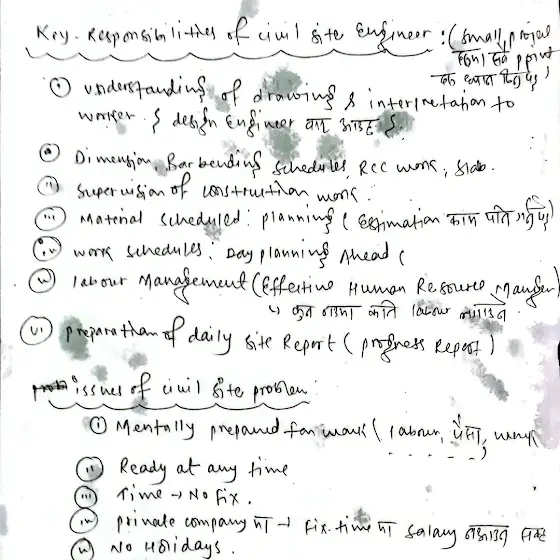 Key-Responsibilities of civil site Engineer : (small project
① understanding of drawing & interpretation to
worker & design Engineer
ⓐ Dimension, Bar bending schedules, RCC work, slab.
ⓘⓘ Supervision of construction work.
ⓘⓘⓘ Material scheduled: planning ( Estimation काम पति
ⓘⓥ work schedules: Day planning Ahead (
ⓥ labour Management (Effective Human Resource
कति labour लगाउने
ⓥⓘ preparation of daily site Report ( progress Report )
issues of civil site problem:
① Mentally prepared for work ( labour, पैसा,
ⓘⓘ Ready at any time
ⓘⓘⓘ Time → No Fix.
ⓘⓥ private company मा → fix. time मा salary
ⓥ No Holidays.